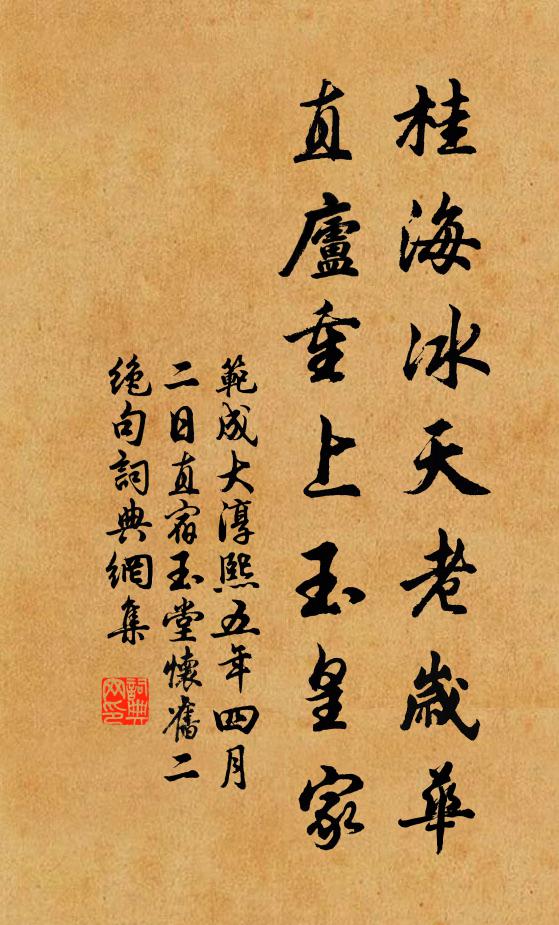 桂海冰天老歲華
直廬重上玉皇家
範成大淳熙五年四月
二日直宿玉堂懷舊二
絕句詞典網集
詞典
网印